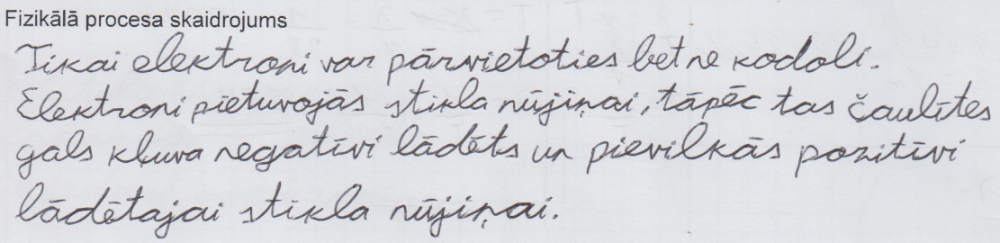 Fizikālā procesa skaidrojums
Tikai elektroni var pārvietoties bet ne kodoli.
Elektroni pietuvojās stikla nūjiņai, tāpēc tas čaulītes
gals kļuva negatīvi lādēts un pievilkās pozitīvi
lādētajai stikla nūjiņai.